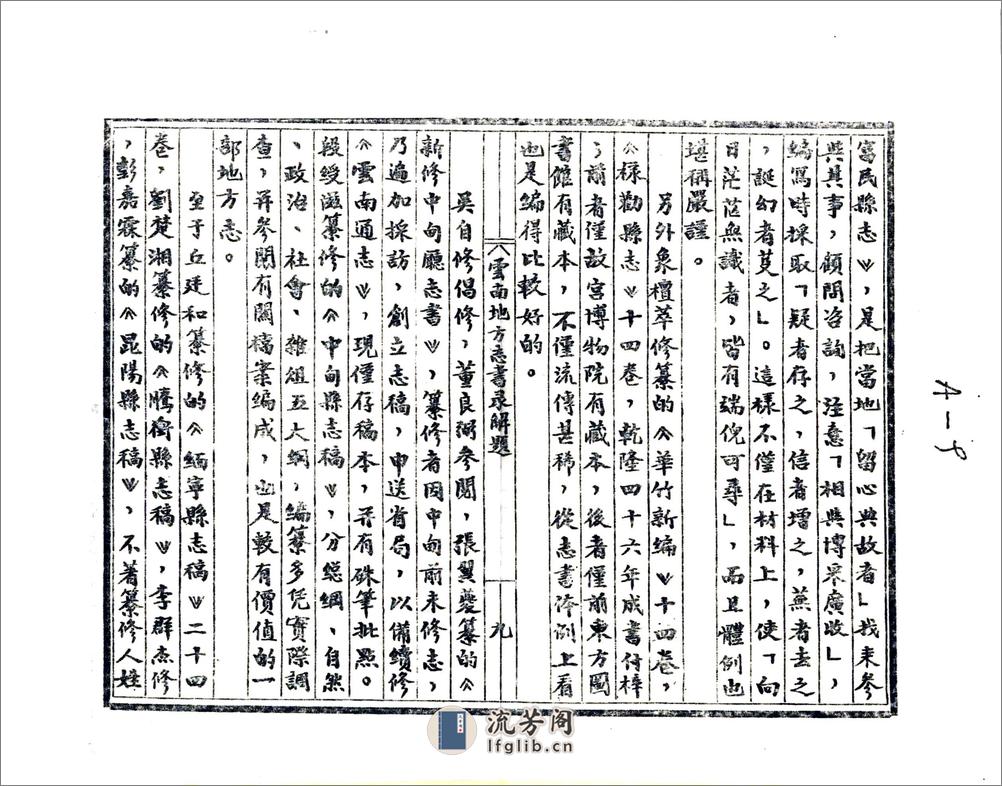 富民縣志》，是把當地「留心典故者」找來參
與其事，顧問咨詢，注意「相與博采廣收」，
編寫時採取「疑者存之，信者增之，蕪者去之
，誕幻者芟之」。這樣不僅在材料上，使「向
日茫茫無識者，皆有端倪可尋」，而且體例也
堪稱嚴謹。
另外象檀萃修纂的《華竹新編》十四卷，
《樣勸縣志》十四卷，乾隆四十六年成書付梓
；前者僅故宮博物院有藏本，後者僅前東方圖
書館有藏本，不僅流傳甚稀，從志書体例上看
也是編得比較好的。
《雲南地方志書录解題
九
吳自修倡修，董良弼參閱，張翼夔纂的《
新修中甸廳志書》，纂修者因中甸前未修志，
乃遍加採訪，創立志稿，申送省局，以備續修
《雲南通志》，現僅存稿本，并有硃筆批點。
段綬滋纂修的《中甸縣志稿》，分總綱、自然
、政治、社會、雜俎五大綱，編纂多凭實際調
查，并參閱有關檔案編成，也是較有價值的一
部地方志。
至于丘廷和纂修的《緬寧縣志稿》二十四
卷，劉楚湘纂修的《騰衝縣志稿》，李群杰修
，彭嘉霖纂的《昆陽縣志稿》，不著纂修人姓
A—9
流芳阁
lfglib.cn